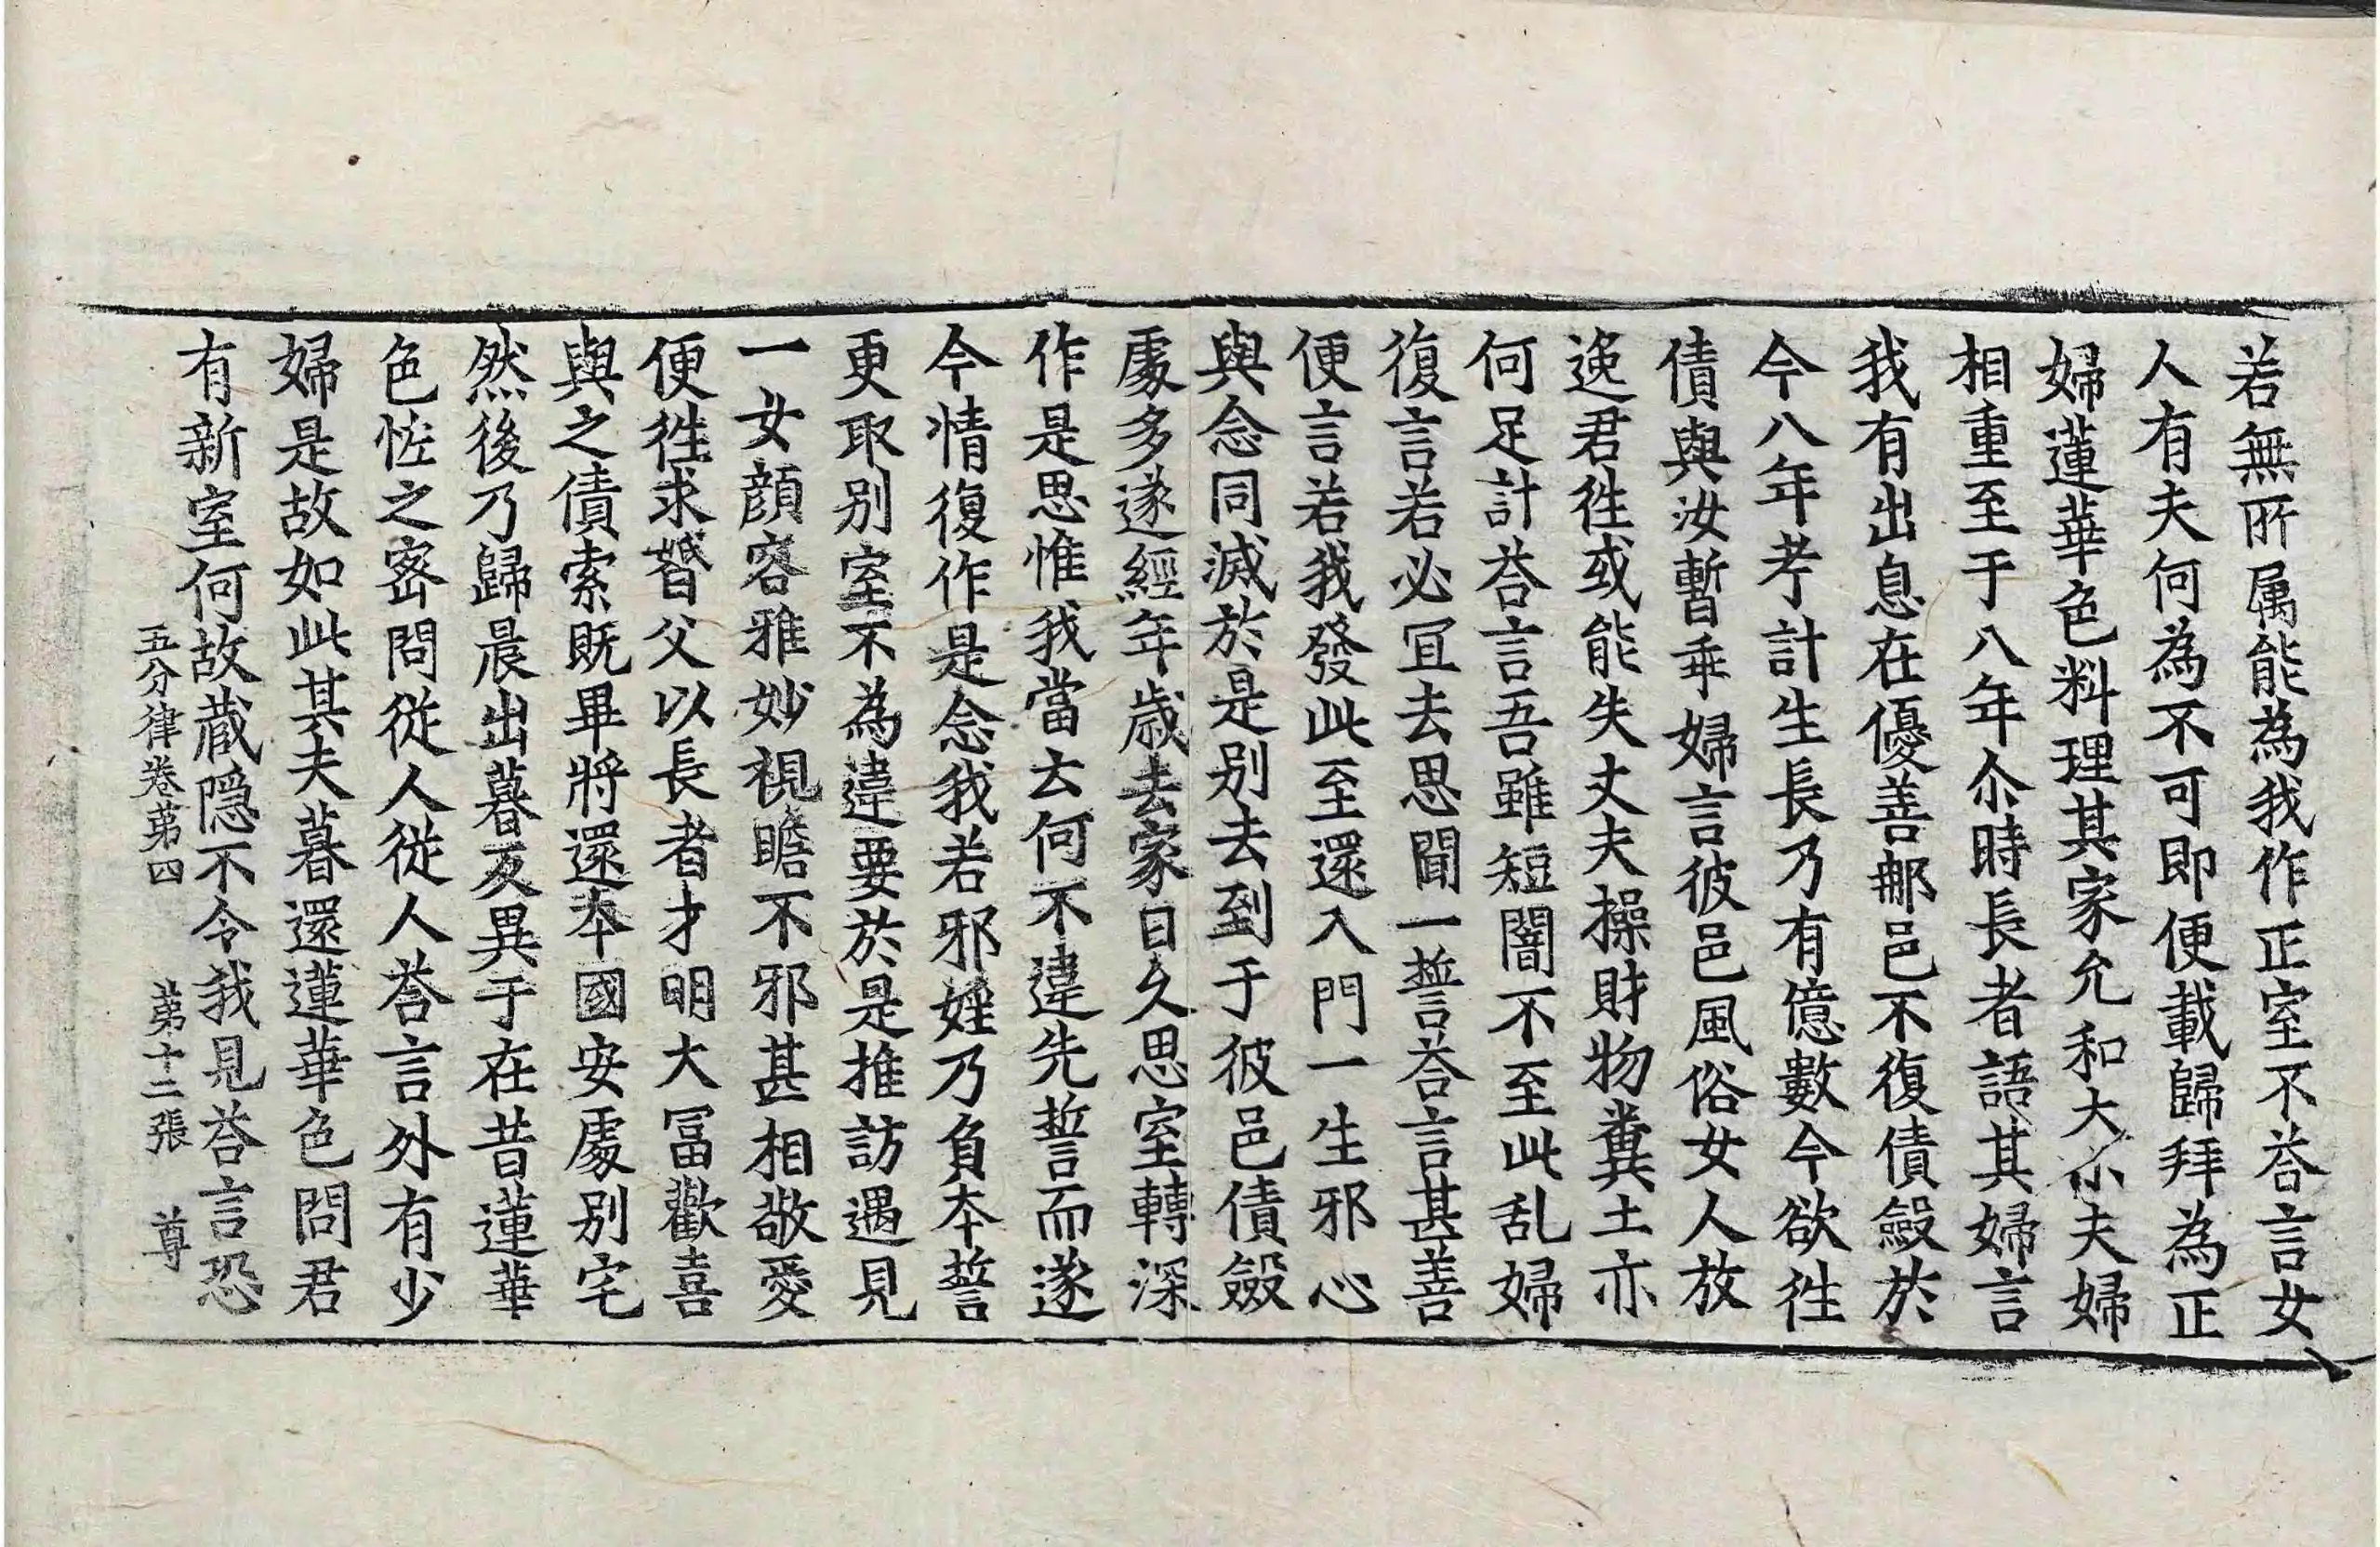 若無所属能為我作正室不荅言女
人有夫何為不可即便載歸拜為正
婦蓮華色料理其家允和大小夫婦
相重至于八年尒時長者語其婦言
我有出息在優善那邑不復債斂於
今八年考計生長乃有億數今欲徃
債與汝暫乖婦言彼邑風俗女人放
逸君徃或能失丈夫操財物糞土亦
何足計荅言吾雖短闇不至此乱婦
復言若必冝去思聞一誓荅言甚善
便言若我發此至還入門一生邪心
與念同滅於是別去到于彼邑債斂
處多遂經年歲去家日久思室轉深
作是思惟我當云何不違先誓而遂
今情復作是念我若邪婬乃負本誓
更取別室不為違要於是推訪遇見
一女顔容雅妙視瞻不邪甚相敬愛
便徃求婚父以長者才明大冨歡喜
與之債索既畢將還本國安處別宅
然後乃歸晨出暮反異于在昔蓮華
色恠之密問從人從人荅言外有少
婦是故如此其夫暮還蓮華色問君
有新室何故蔵隱不令我見荅言恐
五分律卷苐四 苐十二張 尊